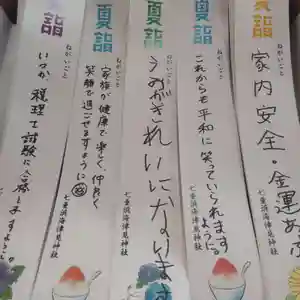 夏詣
ねがいごと
家内安全・金運
夏詣
ねがいごと
これからも平和に
笑っていられます
ように。
七重浜海津見神社
夏詣
ねがいごと
うみがきれいになりますように
七重浜海津見神社
夏詣
ねがいごと
家族が健康で楽しく仲良く
笑顔で過ごせますように
七重浜海津見神社
詣
ねがいごと
いつか、税理士試験に合格しますように